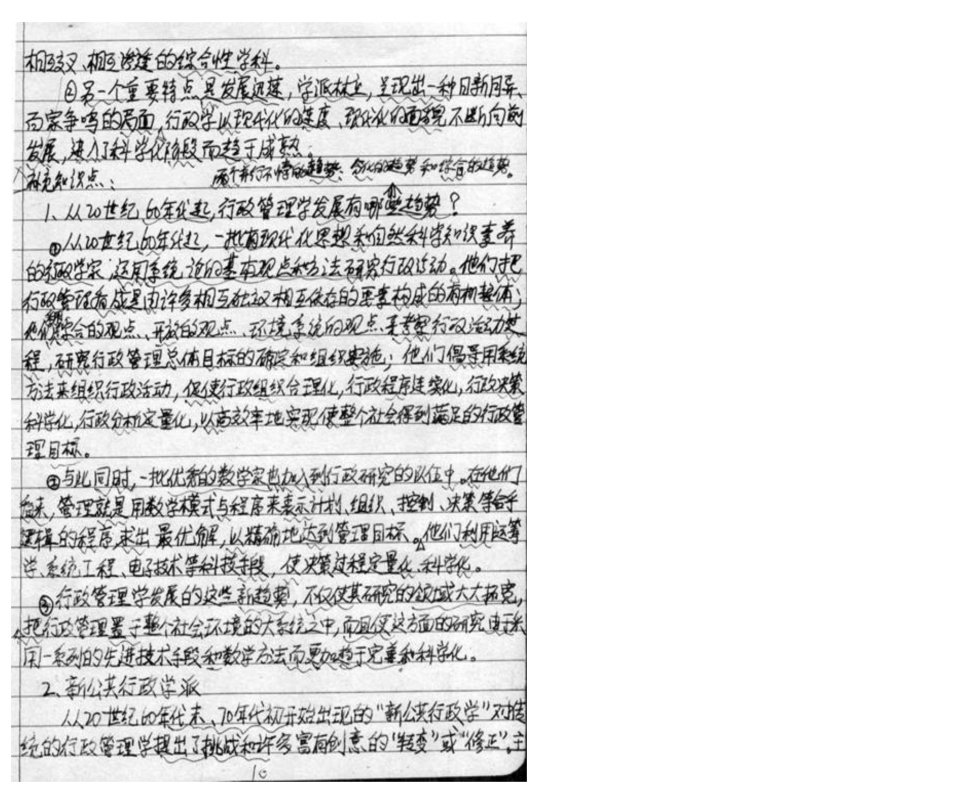 相互交叉、相互渗透的综合性学科。
②另一个重要特点是发展迅速，学派林立，呈现出一种日新月异、
百家争鸣的局面，行政学以现代化的速度、现代化的面貌不断向前
发展，进入了科学化阶段而趋于成熟。
补充知识点： 两个并行不悖的趋势：分化的趋势和综合的趋势。
1、从20世纪60年代起，行政管理学发展有哪些趋势？
①从20世纪60年代起，一批有现代化思想和自然科学知识素养
的行政学家，运用系统论的基本观点和方法研究行政活动。他们把
行政管理看成是由许多相互独立又相互依存的要素构成的有机整体；
他们综合的观点、开放的观点、环境系统的观点来考察行政活动过
程，研究行政管理总体目标的确定和组织实施；他们倡导用系统
方法来组织行政活动，促使行政组织合理化，行政程序连续化，行政决策
科学化，行政分析定量化，以高效率地实现使整个社会得到满足的行政管
理目标。
②与此同时，一批优秀的数学家也加入到行政研究的队伍中。在他们
看来，管理就是用数学模式与程序来表示计划、组织、控制、决策等合乎
逻辑的程序，求出最优解，以精确地达到管理目标。他们利用运筹
学、系统工程、电子技术等科技手段，使决策过程定量化、科学化。
③行政管理学发展的这些新趋势，不仅使其研究的领域大大拓宽，
把行政管理置于整个社会环境的大系统之中，而且使这方面的研究由于采
用一系列的先进技术手段和数学方法而更加趋于完善和科学化。
2、新公共行政学派
从20世纪60年代末、70年代初开始出现的“新公共行政学”对传
统的行政管理学提出了挑战和许多富有创意的“转变”或“修正”。主
10